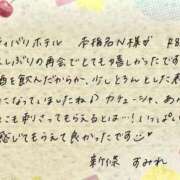 ィバリホテル 本指名N様が
しぶりの再会でとても嬉しかったです
酒を飲んだからか、少しとろんとした
になっていましたね♪ カチューシャ、あ
にも刺さってもらえるとは…! いっぱい
感じてもらえて良かったです
新保 すみれ